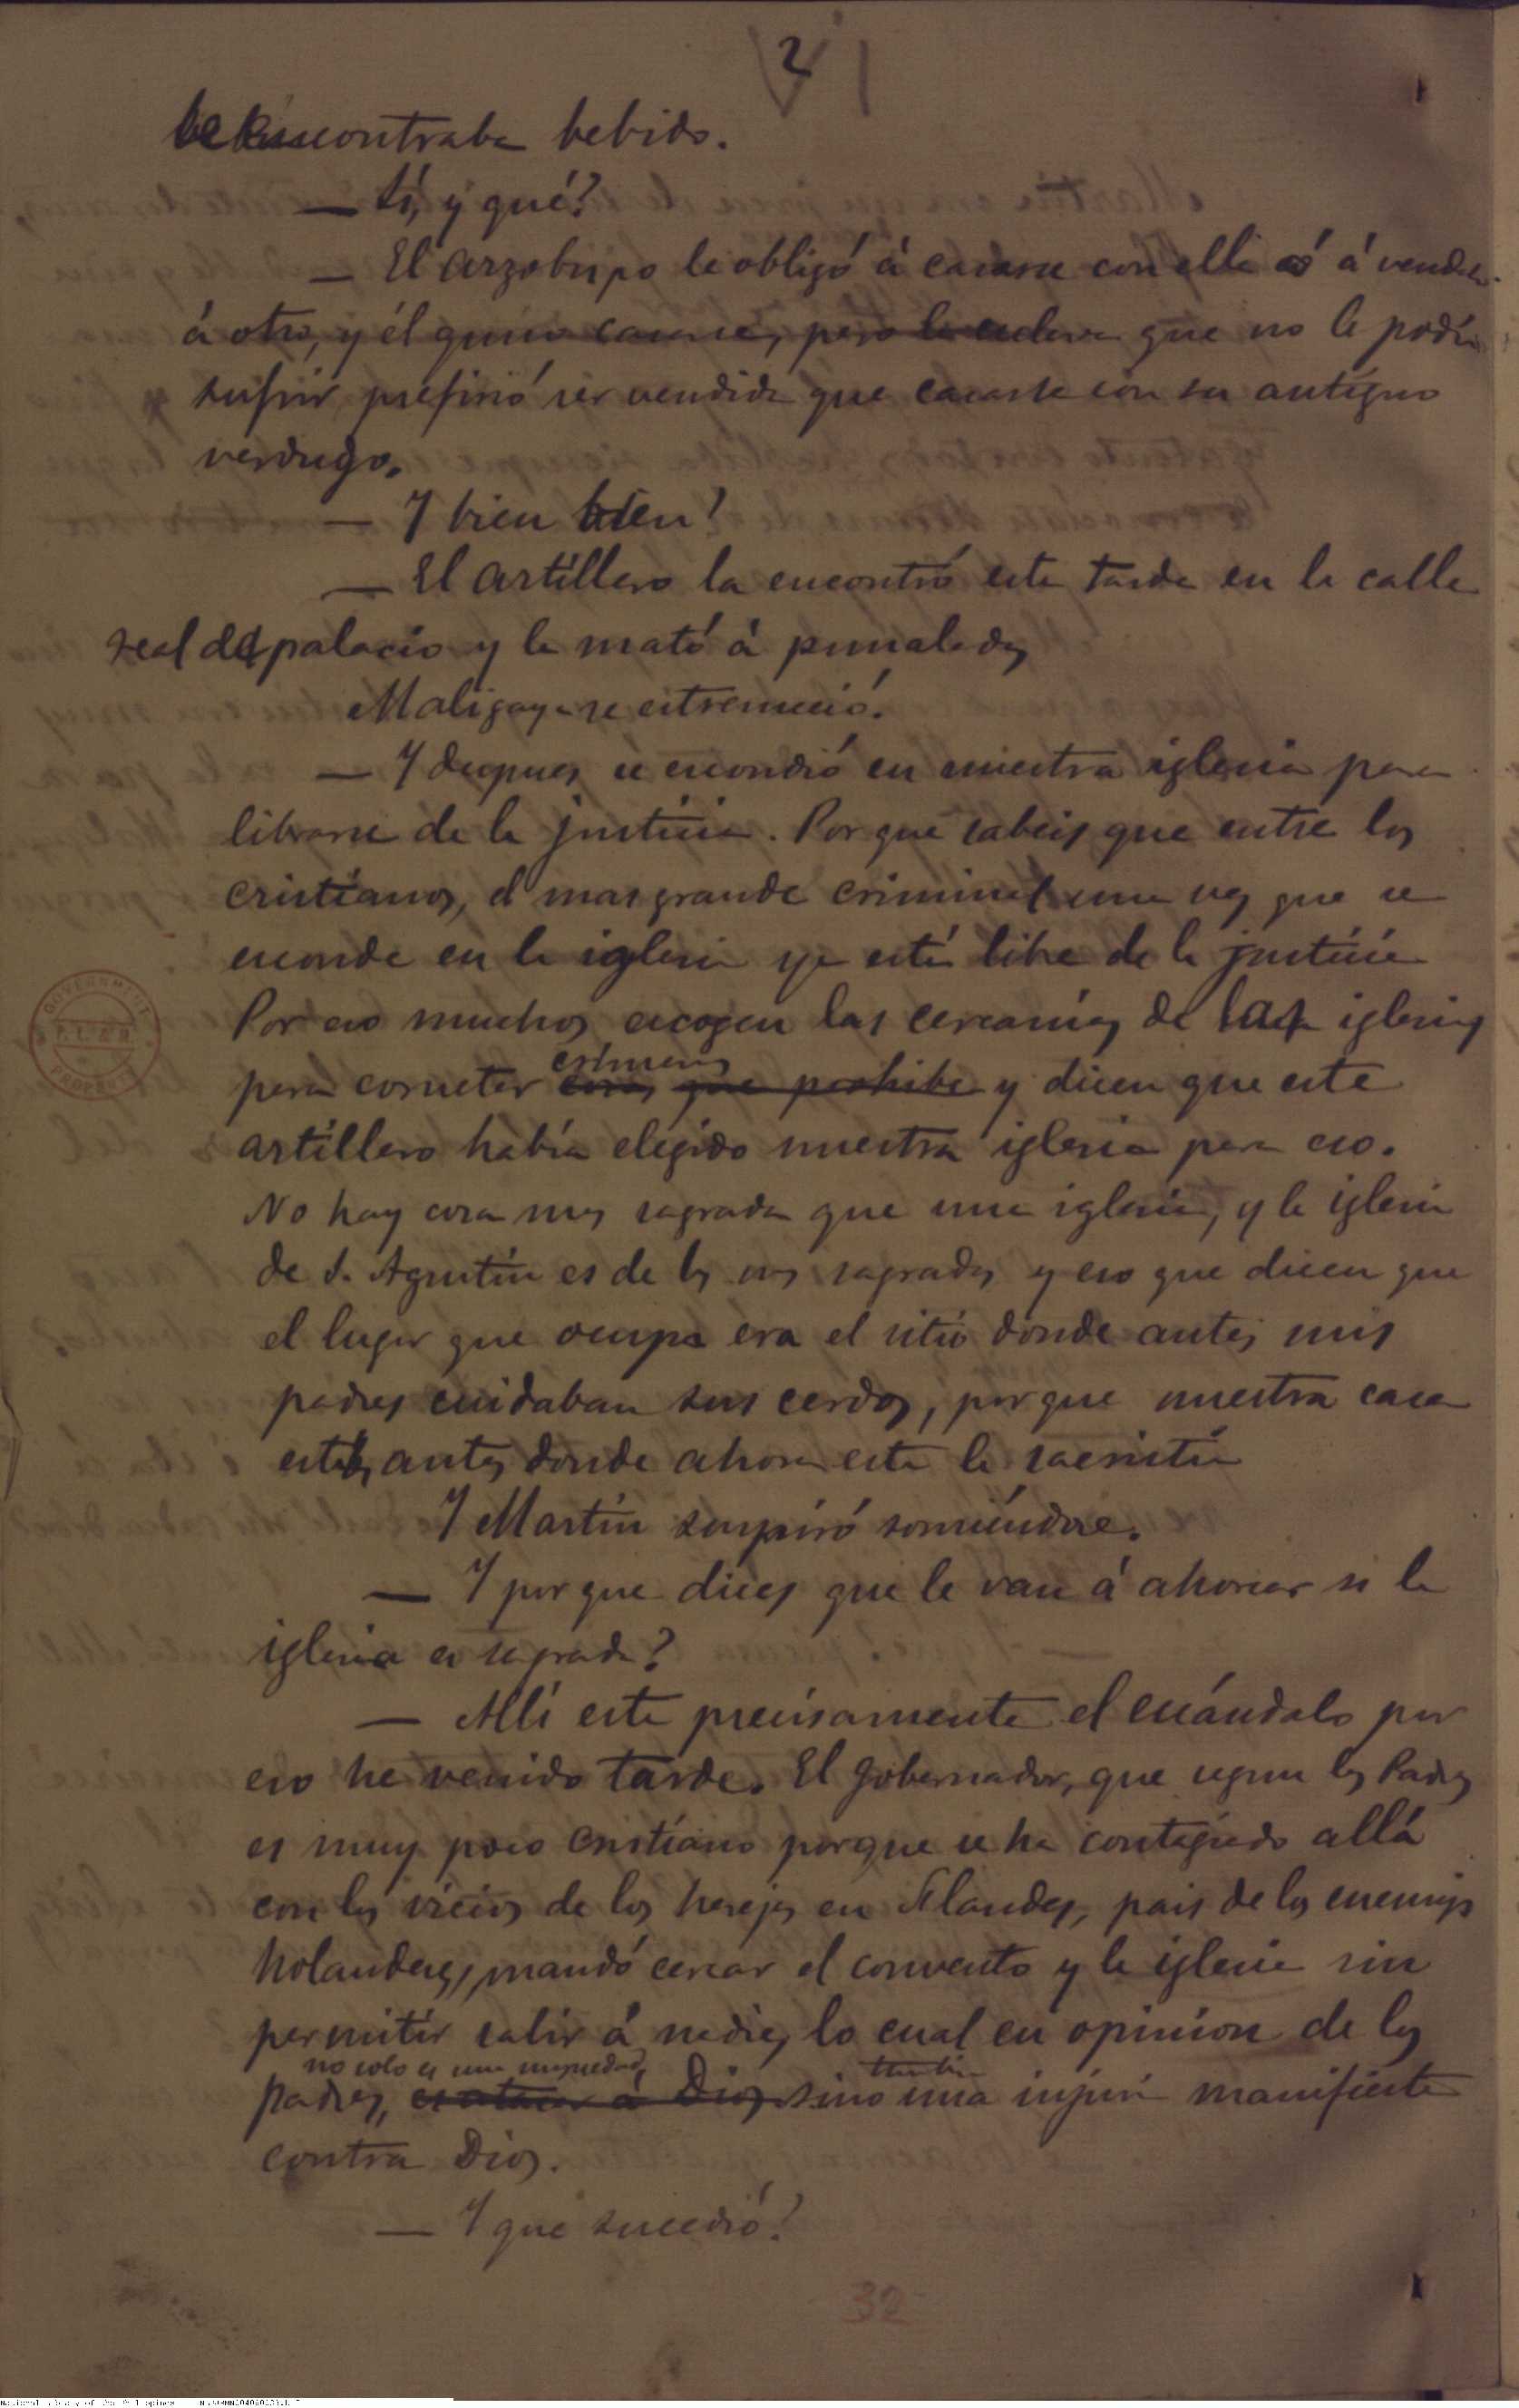 2
se encontraba bebido.
— Sí, y qué?
— El arzobispo le obligó á casarse con ella ó á venderla
á otro, y él quiso casarse, pero la esclava que no le podía
sufrir prefirió ser vendida que casarse con su antiguo
verdugo.
— Y bien bien?
— El artillero la encontró esta tarde en la calle
real del palacio y la mató á puñaladas
Maligaya se estremeció.
— Y despues se escondió en nuestra iglesia para
librarse de la justicia. Porque sabeis que entre los
cristianos, el mas grande criminal una vez que se
esconde en la iglesia ya está libre de la justicia
Por eso muchos escogen las cercanías de las iglesias
crímenes
para cometer cosas que prohibe y dicen que este
artillero había elegido nuestra iglesia para eso.
No hay cosa mas sagrada que una iglesia, y la iglesia
de S. Agustín es de las mas sagradas y eso que dicen que
el lugar que ocupa era el sitio donde antes mis
padres cuidaban sus cerdos, porque nuestra casa
estaba antes donde ahora esta la sacristía
Y Martín suspiró sonriéndose.
— Y por que dices que le van á ahorcar si la
iglesia es sagrada?
— Allí esta precisamente el escándalo por
eso he venido tarde. El Gobernador, que segun los Padres
es muy poco cristiano porque se ha contagiado allá
con los vicios de los herejes en Flandes, pais de los enemigos
holandeses, mandó cercar el convento y la iglesia sin
permitir salir á nadie, lo cual en opinion de los
no solo es una impiedad, tambien
padres, es atacar á Dios sino una injuria manifiesta
contra Dios.
— Y que sucedió?
32
GOVERNMENT
PROPERTY